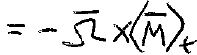 = - \overline{\Omega} \times \langle \overline{M} \rangle_t